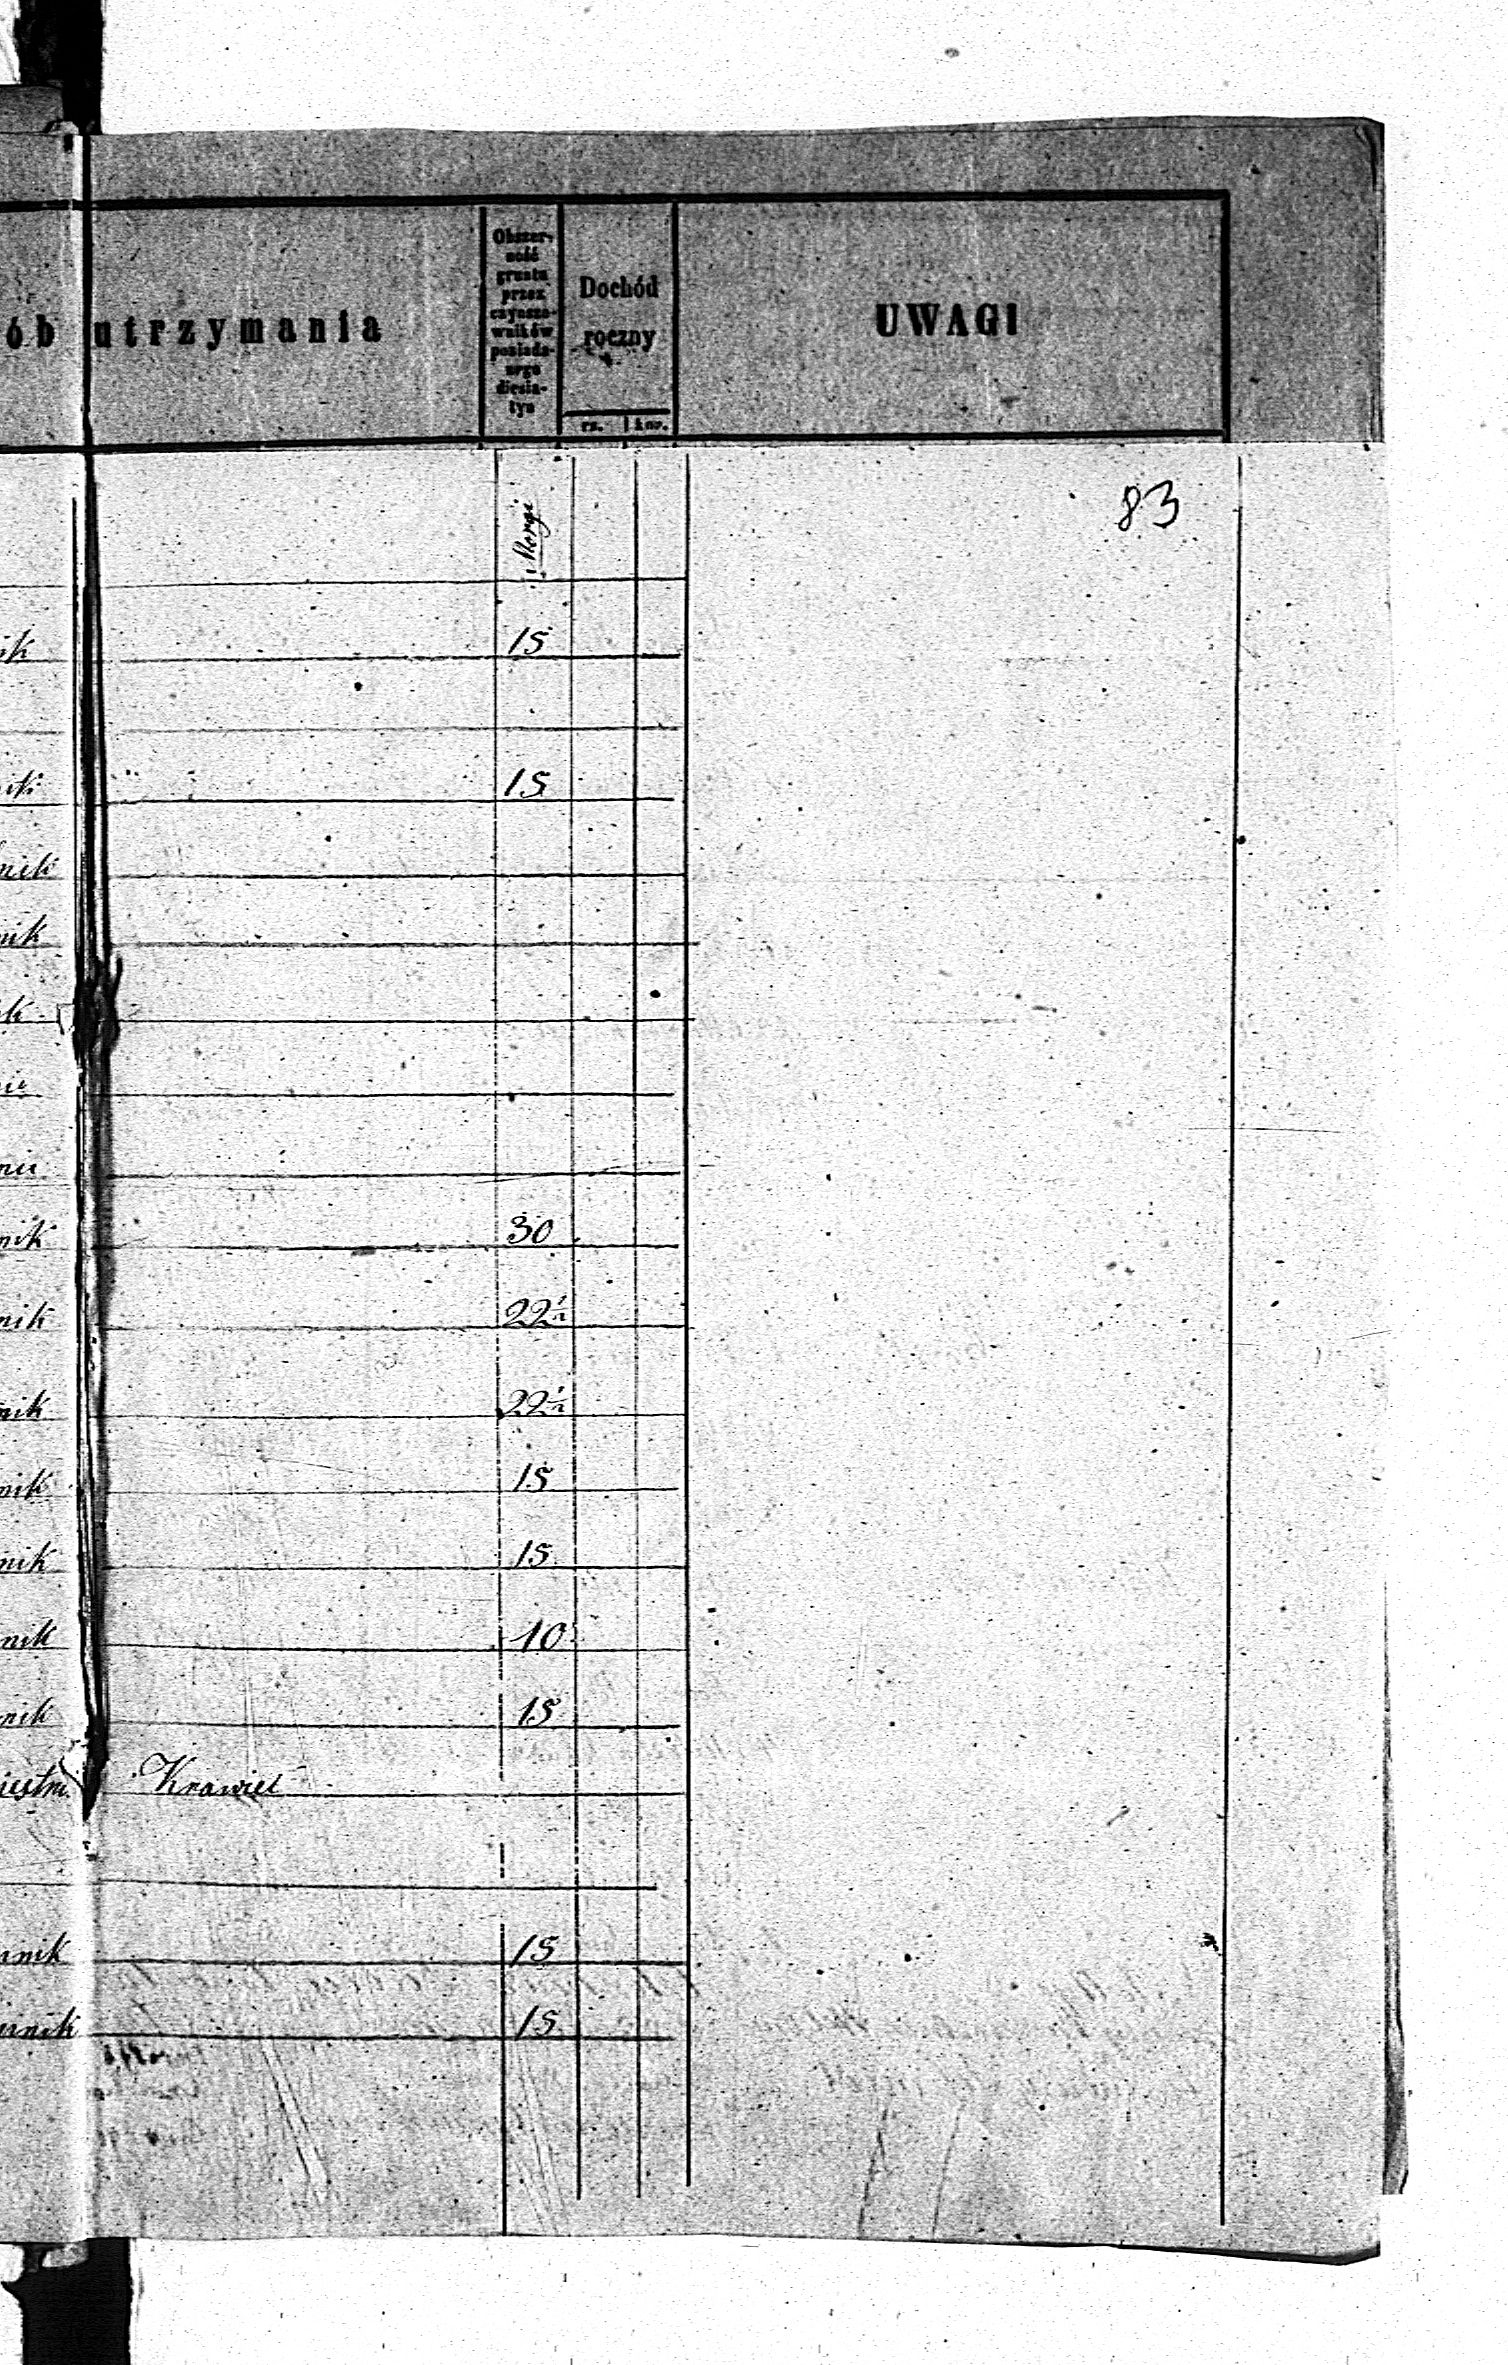 ób utrzymania
Obszer-
ność
gruntu
przez
czynszo-
wników
posiada-
nego
diesia-
tyn
Dochód
roczny
rs. kop.
UWAGI
83
Morgi
ik 15
nik 15
nik
nik
ik
nik 30
nik 22½
nik 22½
nik 15
nik 15
nik 10
nik 15
Krawiec
nik 15
nik 15